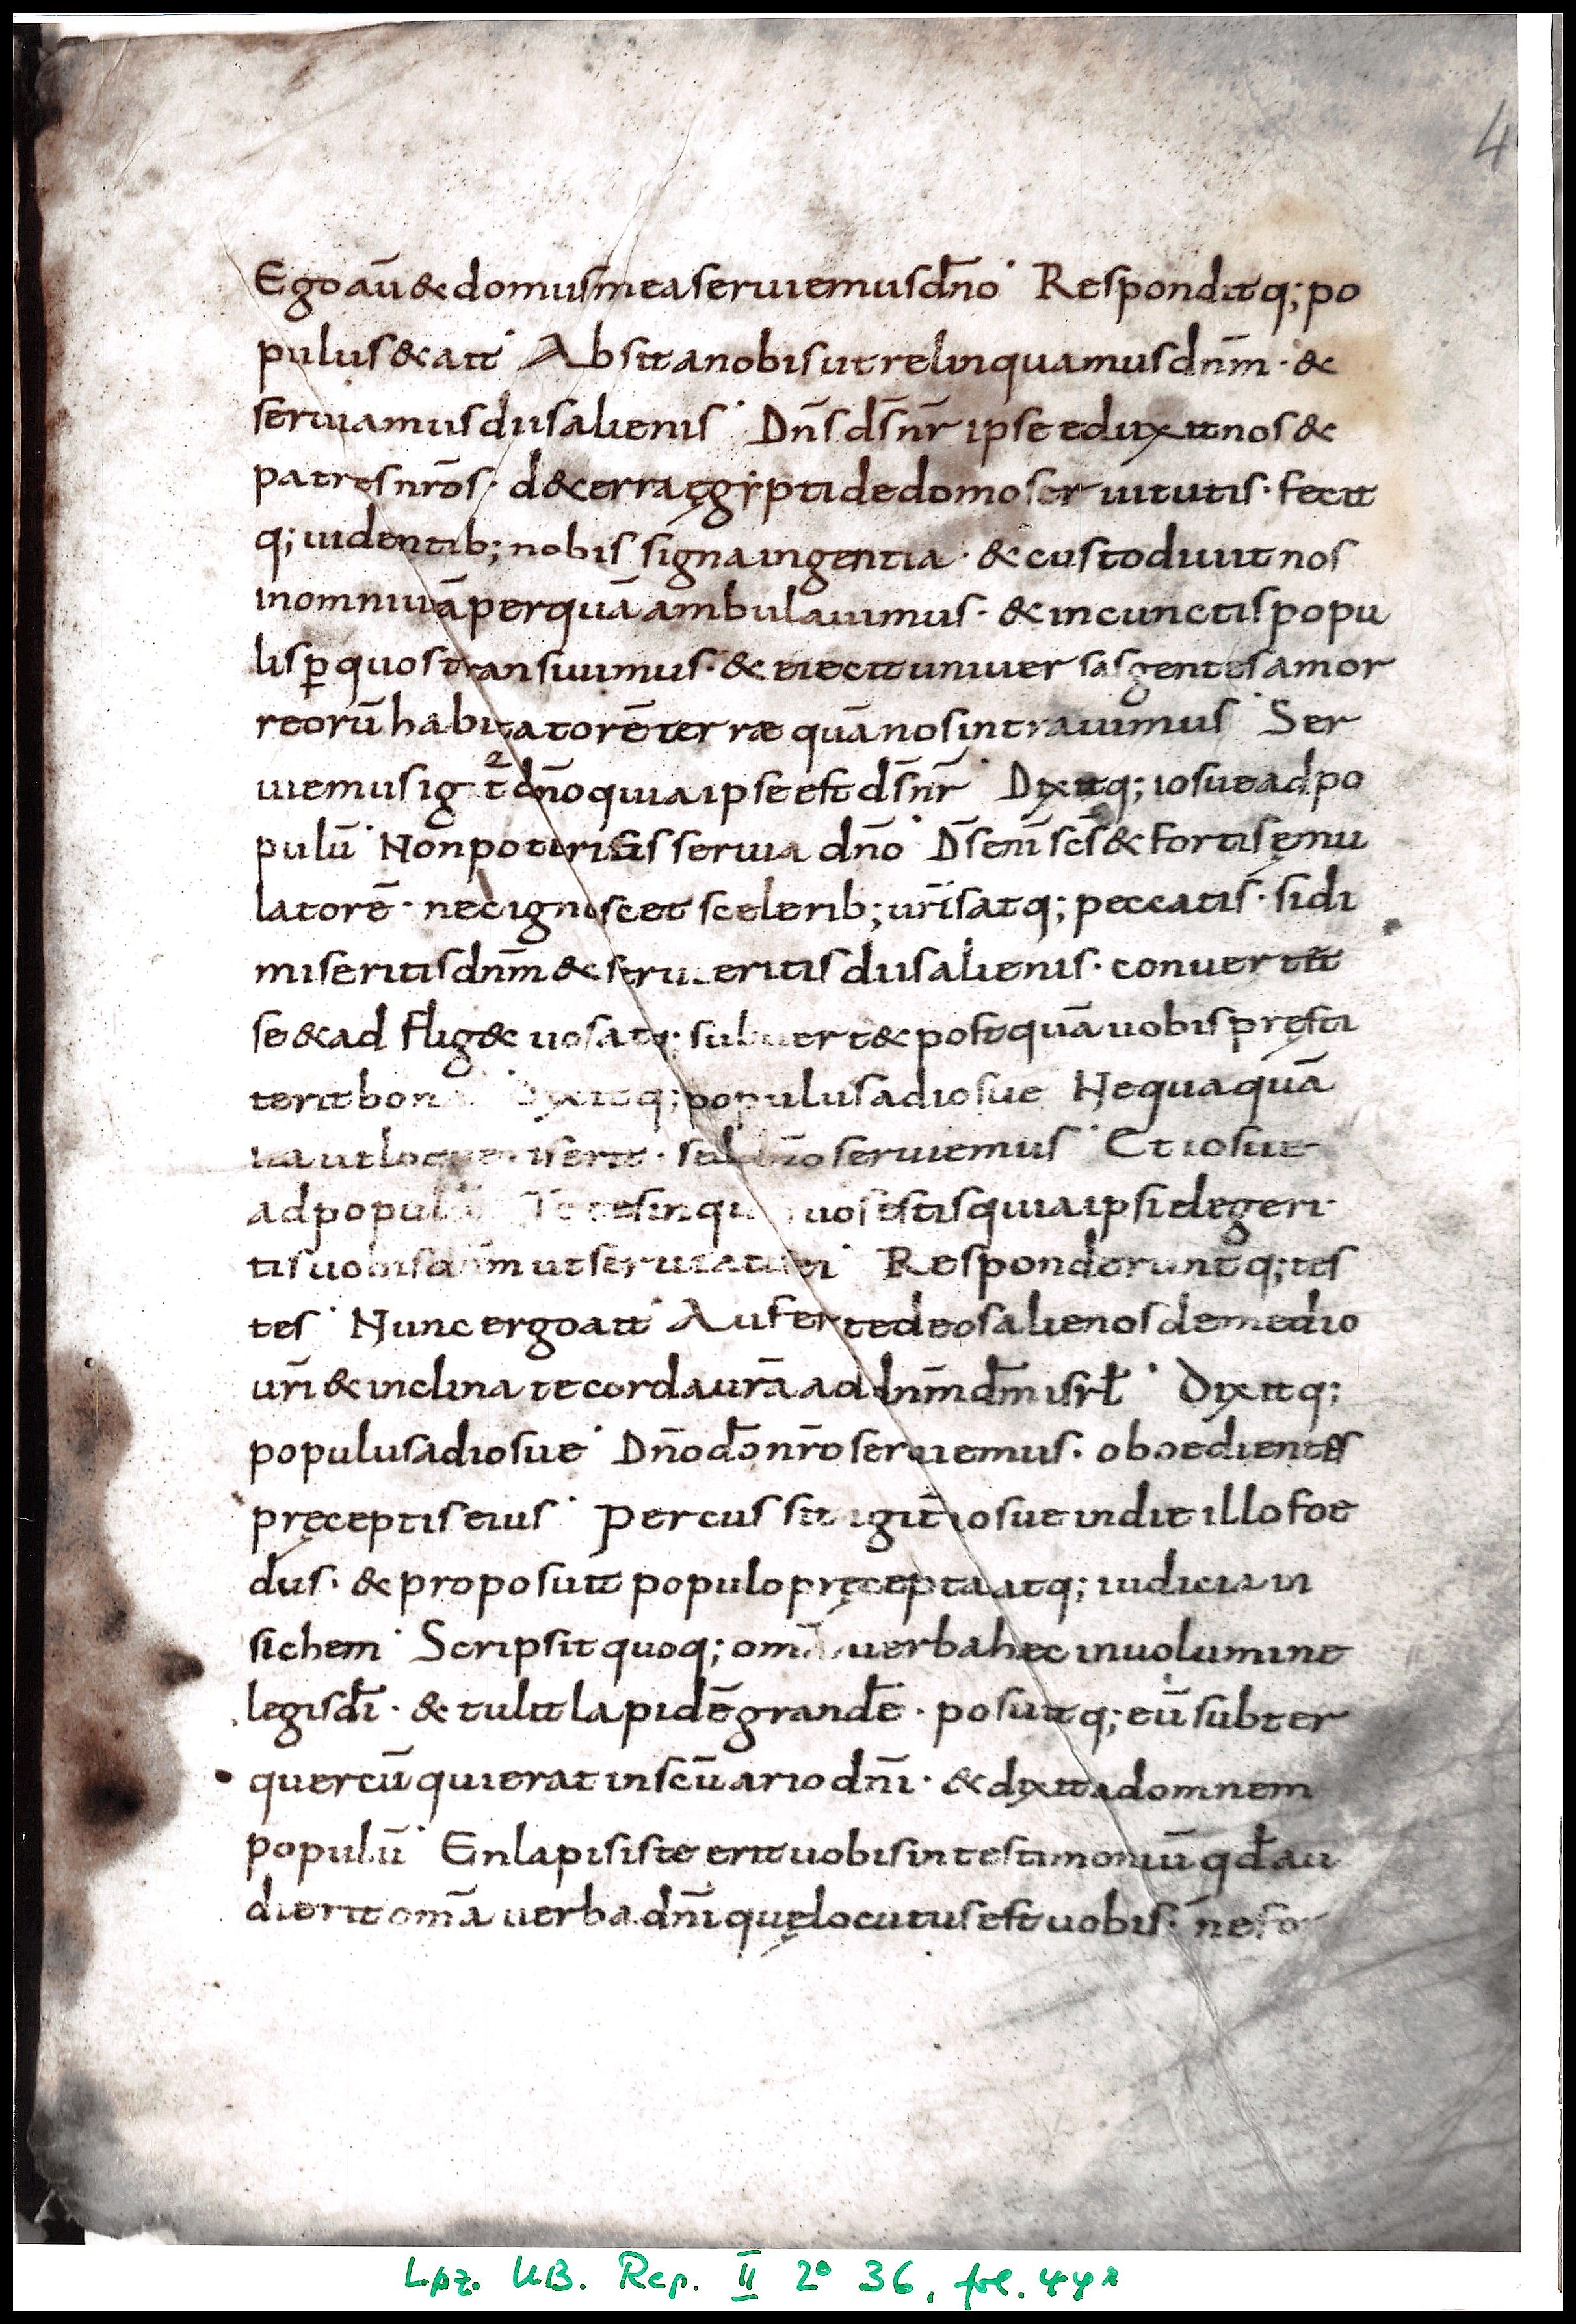 4
Ego aū & domus mea seruiemus dn̄o Responditq; po
pulus & ait Absit a nobis ut relinquamus dnm̄ · &
seruiamus diis alienis Dn̄s ds̄ nr̄ ipse eduxit nos &
patres nrōs · d& erra ęgypti de domo seruitutis · fecit
q; uidentib; nobis signa ingentia · & custodiuit nos
in omni uiā per quā ambulauimus · & in cunctis popu
lis ꝑ quos transiuimus · & eiecit uniuersas gentes amor
reorū habitatorē terrae quā nos intrauimus Ser
uiemus igit̄ dn̄o quia ipse est ds̄ nr̄ Dixitq; iosue ad po
pulū Non poteritis seruia dn̄o Ds̄ enī scs̄ & fortis ęmu
latorē · nec ignoscet scelerib; urīs atq; peccatis · si di
miseritis dnm̄ & serueritis diis alienis · conuertet
se & adflig& uos atq; subuert& postquā uobis pręsti
terit bona Dixitq; populus ad iosue Nequaquā
ita ut erit · sed dn̄o seruiemus Et iosue
ad populū Testes inquit uos estis quia ipsi elegeri
tis uobis dnm̄ ut seruiatis ei Responderuntq; tes
tes Nunc ergo ait Auferte deos alienos de medio
urī & inclinate corda urā ad dnm̄ dm̄ isrł Dixitq;
populus ad iosue Dn̄o dō nrō seruiemus · oboedientes
pręceptis eius Percussit igit̄ iosue in die illo foe
dus · & proposuit populo pręcepta atq; iudicia in
sichem Scripsit quoq; omā uerba hec in uolumine
legis dī · & tulit lapidē grandē · posuitq; eū subter
quercū qui erat in scūario dnī · & dixit ad omnem
populū En lapis iste erit uobis in testimoniū qđ au
dierit omā uerba dnī quę locutus est uobis · ne for
Lpz. UB. Rep. II 2° 36, fol. 44r